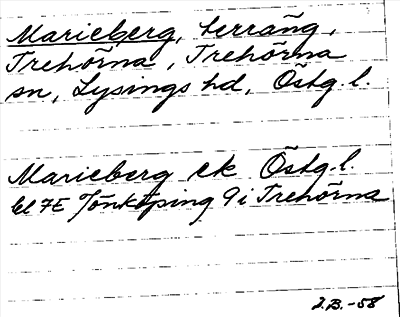 Marieberg, terräng,
Trehörna, Trehörna
sn, Lysings hd, Östg. l.
Marieberg ek Östg. l.
bl 7E Jönköping 9i Trehörna
J.B.-58